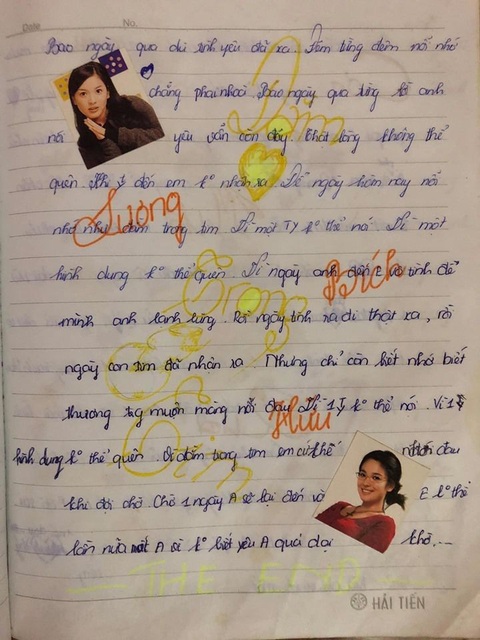 Date No.
Bao ngày qua dù tình yêu đã xa. Đêm từng đêm nỗi nhớ
chẳng phai nhoà. Bao ngày qua từng lời anh
nói yêu vẫn còn đây. Thật lòng không thể
quên. Khi đến em k° nhận ra. Để ngày hôm nay nỗi
nhớ như đâm trong tim. Vì một TY k° thể nói. Vì một
hình dung k° thể quên. Vì ngày anh đến E vô tình để
mình anh lạnh lùng. Rồi ngày tình ra đi thật xa, rồi
ngày con tim đã nhận ra. Nhưng chỉ còn biết nhớ biết
thương trg muộn màng nỗi đau. Vì 1 TY k° thể nói. Vì 1
hình dung k° thể quên. Vì đâm trong tim em cứ thế nhói đau
khi đợi chờ. Chờ 1 ngày A sẽ lại đến và E k° thể
lần nữa mất A vì k° biết yêu A quá dại khờ...
Đâm
Lương
Bích
Trong
Hữu
Tim
THE END
HẢI TIẾN